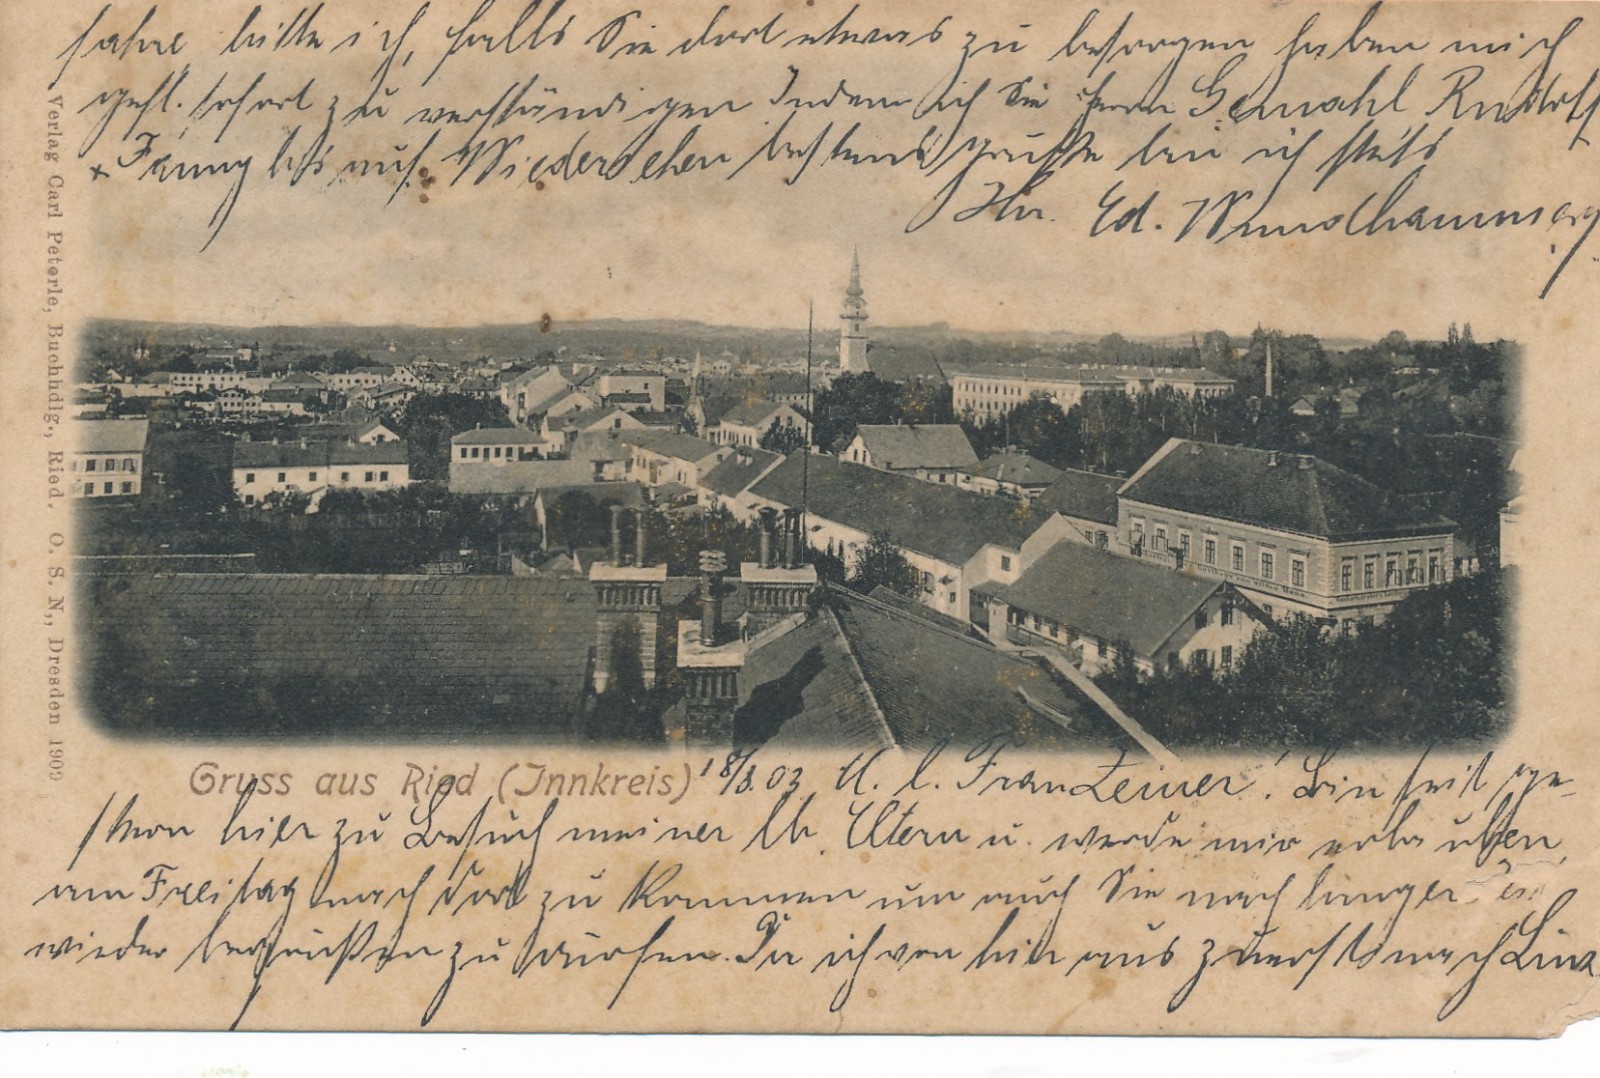 Gruss aus Ried (Innkreis)
18/3.03 U. l. Frau Zeiner! Bin seit ge-
stern hier zu Besuch meiner lb. Eltern u. werde mir erlauben
am Freitag nach dort zu kommen um auch Sie nach langer Zeit
wieder begrüßen zu dürfen. Da ich von hier aus zuerst nach Linz
fahre, bitte ich, falls Sie dort etwas zu besorgen haben mich
gefl. sofort zu verständigen Indem ich Sie Herrn Gemahl Rudolf
+ Fanny bis auf Wiedersehen bestens grüße bin ich stets
Ihr. Ed.
Verlag Carl Peterle, Buchhdlg., Ried. O. S. N., Dresden